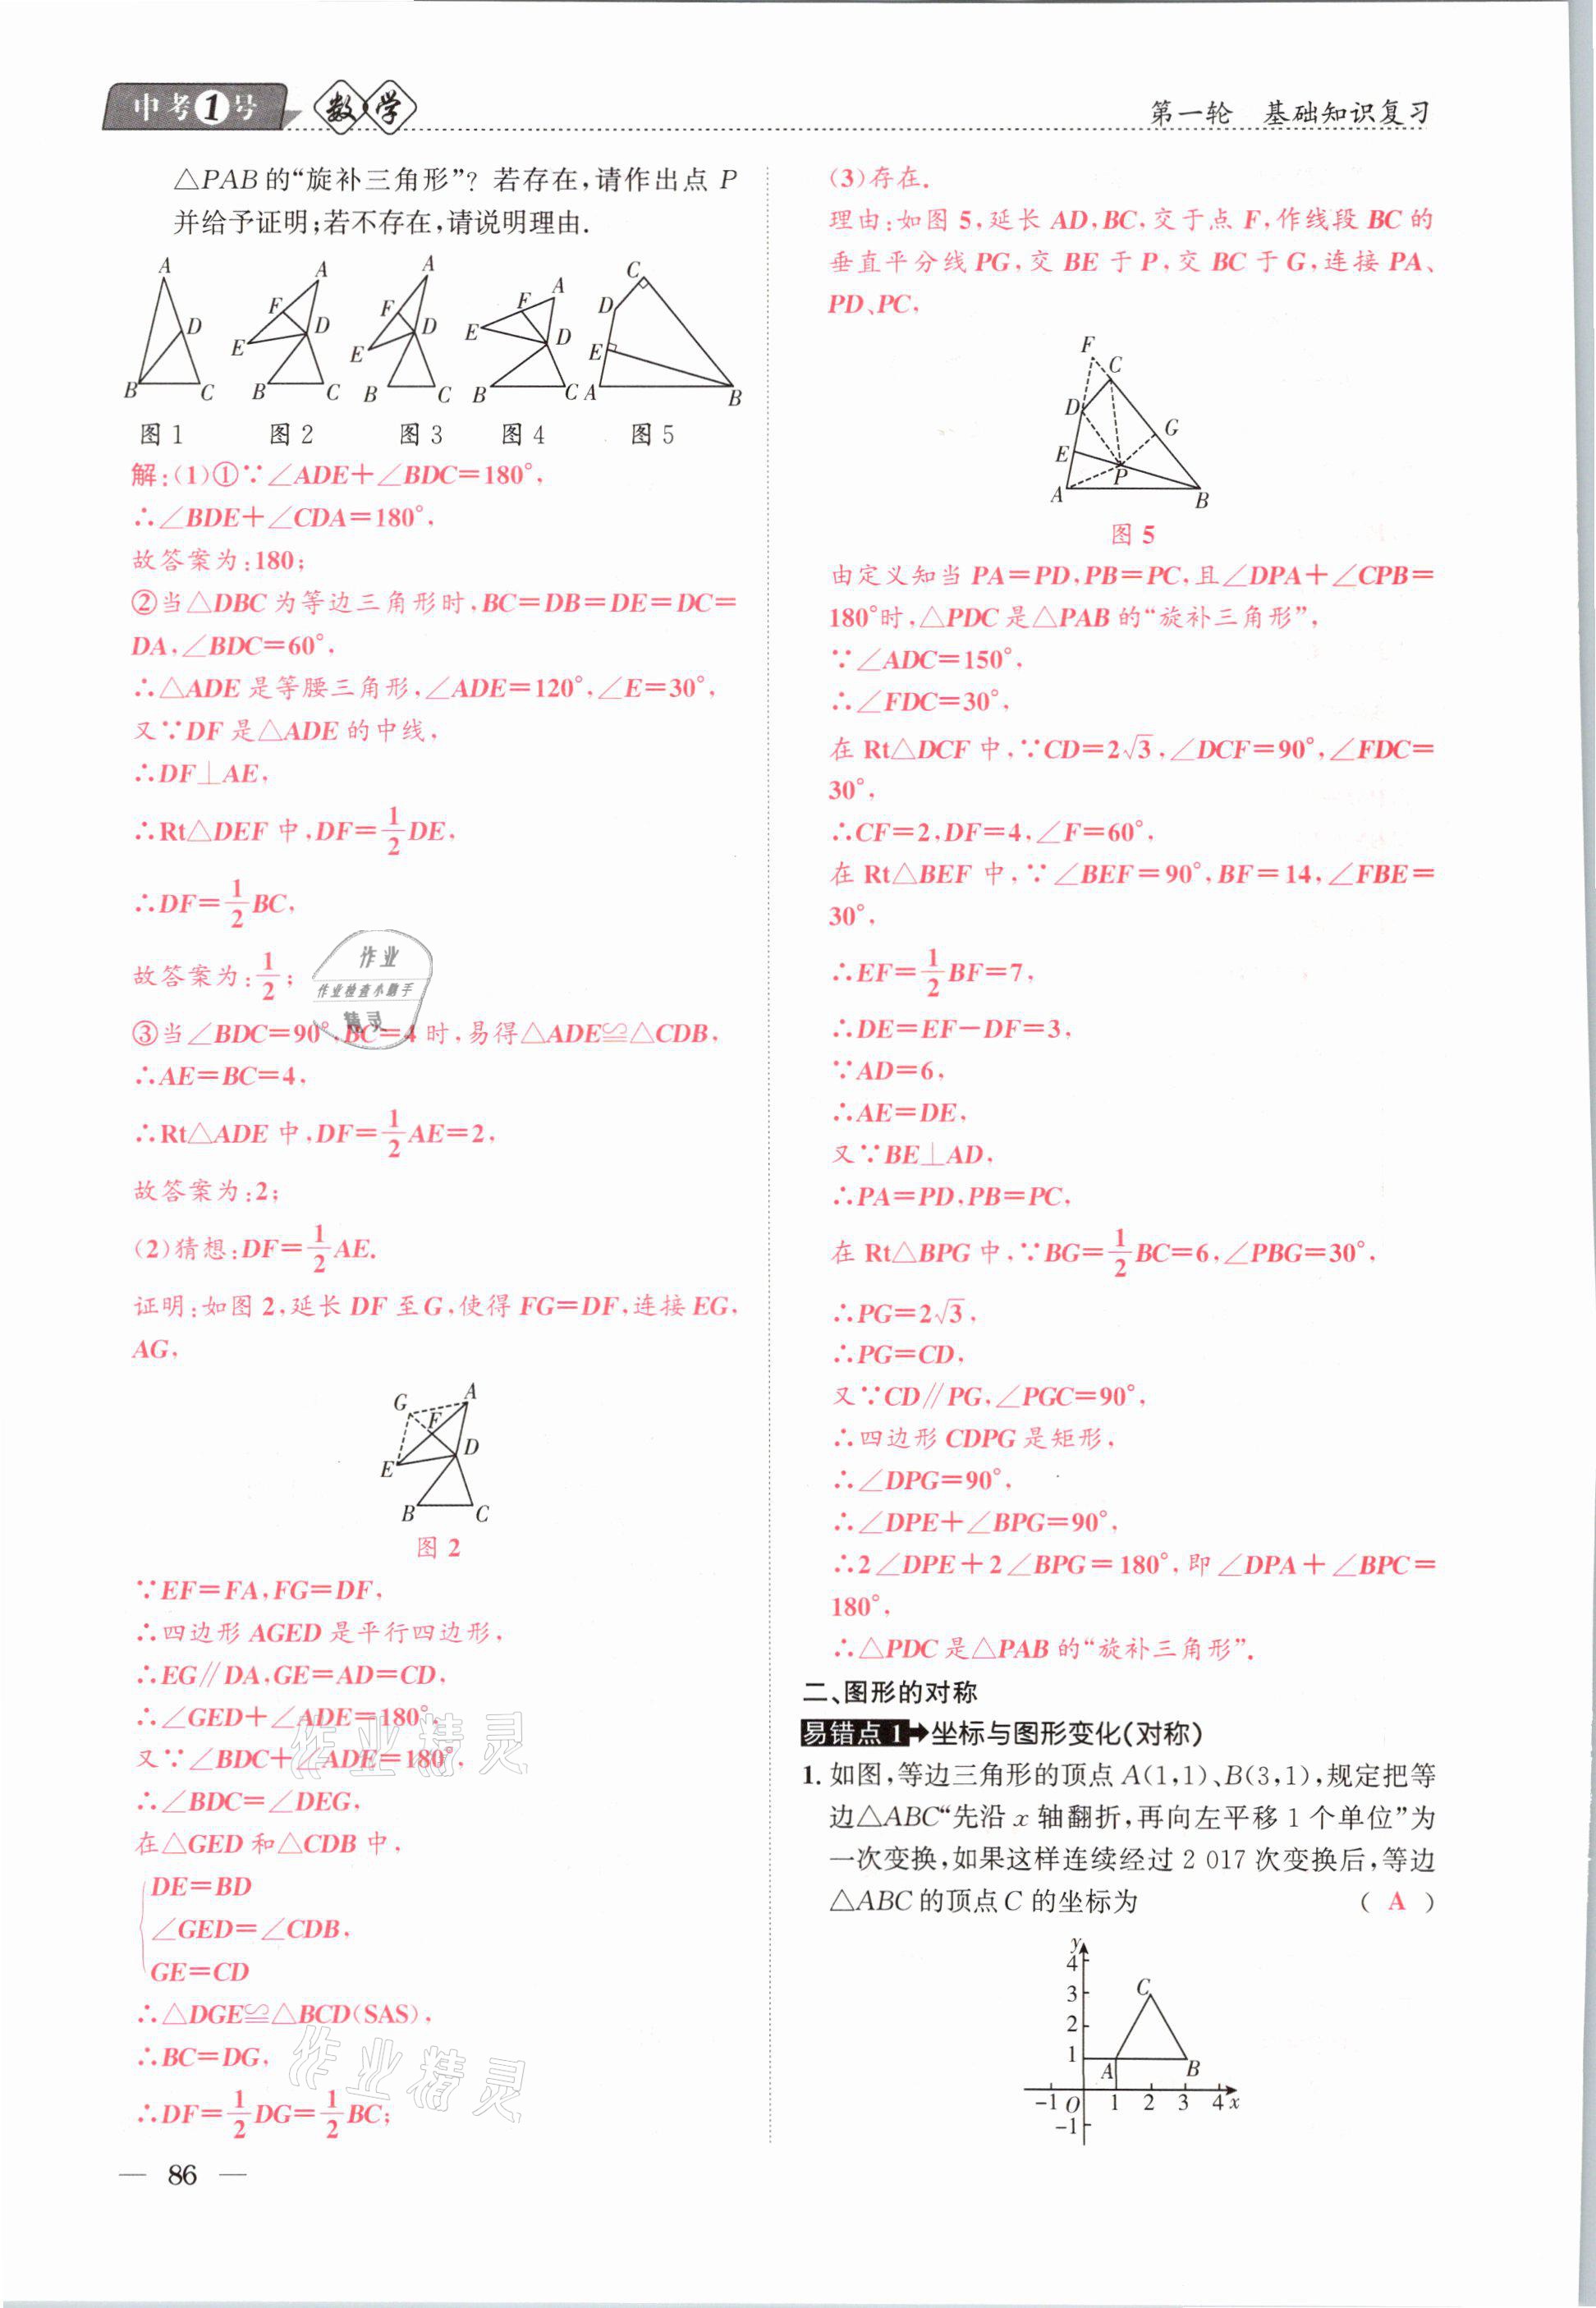 中考1号 数学
第一轮 基础知识复习
△PAB的“旋补三角形”? 若存在,请作出点 P
并给予证明;若不存在,请说明理由.
A
D
B
C
A
F
D
E
B
C
A
F
D
E
B
C
A
F
E
D
B
C
C
D
E
A
B
图 1 图 2 图 3 图 4 图 5
解:(1)①∵∠ADE+∠BDC=180°,
∴∠BDE+∠CDA=180°.
故答案为:180;
②当△DBC 为等边三角形时,BC=DB=DE=DC=
DA,∠BDC=60°,
∴△ADE 是等腰三角形,∠ADE=120°,∠E=30°,
又∵DF 是△ADE 的中线,
∴DF⊥AE,
∴Rt△DEF 中,DF=1/2DE,
∴DF=1/2BC,
故答案为:1/2;
③当∠BDC=90°,BC=4 时,易得△ADE≌△CDB,
∴AE=BC=4,
∴Rt△ADE 中,DF=1/2AE=2,
故答案为:2;
(2)猜想:DF=1/2AE.
证明:如图 2,延长 DF 至 G,使得 FG=DF,连接 EG,
AG,
G
A
F
D
E
B
C
图 2
∵EF=FA,FG=DF,
∴四边形 AGED 是平行四边形,
∴EG∥DA,GE=AD=CD,
∴∠GED+∠ADE=180°,
又∵∠BDC+∠ADE=180°,
∴∠BDC=∠DEG,
在△GED 和△CDB 中,
DE=BD
∠GED=∠CDB,
GE=CD
∴△DGE≌△BCD(SAS),
∴BC=DG,
∴DF=1/2DG=1/2BC;
作业
作业检查小助手
精灵
作业精灵
作业精灵
86
(3)存在.
理由:如图 5,延长 AD,BC,交于点 F,作线段 BC 的
垂直平分线 PG,交 BE 于 P,交 BC 于 G,连接 PA、
PD、PC,
F
C
D
G
E
P
A
B
图 5
由定义知当 PA=PD,PB=PC,且∠DPA+∠CPB=
180°时,△PDC 是△PAB 的“旋补三角形”,
∵∠ADC=150°,
∴∠FDC=30°,
在 Rt△DCF 中,∵CD=2√3,∠DCF=90°,∠FDC=
30°,
∴CF=2,DF=4,∠F=60°,
在 Rt△BEF 中,∵∠BEF=90°,BF=14,∠FBE=
30°,
∴EF=1/2BF=7,
∴DE=EF−DF=3,
∵AD=6,
∴AE=DE,
又∵BE⊥AD,
∴PA=PD,PB=PC,
在 Rt△BPG 中,∵BG=1/2BC=6,∠PBG=30°,
∴PG=2√3,
∴PG=CD,
又∵CD∥PG,∠PGC=90°,
∴四边形 CDPG 是矩形,
∴∠DPG=90°,
∴∠DPE+∠BPG=90°,
∴2∠DPE+2∠BPG=180°,即∠DPA+∠BPC=
180°,
∴△PDC 是△PAB 的“旋补三角形”.
二、图形的对称
易错点 1 坐标与图形变化(对称)
1. 如图,等边三角形的顶点 A(1,1)、B(3,1),规定把等
边△ABC“先沿 x 轴翻折,再向左平移 1 个单位”为
一次变换,如果这样连续经过 2 017 次变换后,等边
△ABC 的顶点 C 的坐标为 ( A )
y
4
3
2
1
C
A
B
−1 O 1 2 3 4 x
−1